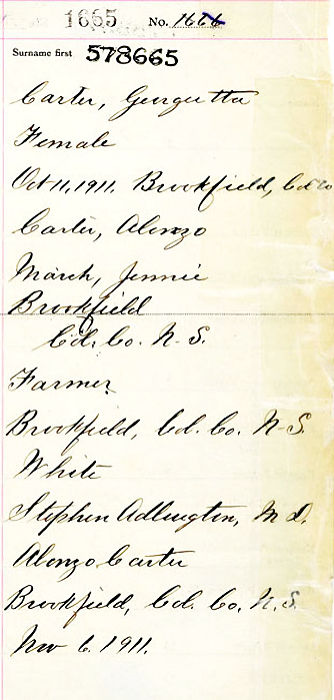 1665 No. 1666
Surname first 578665
Carter, Georgietta
Female
Oct 11, 1911. Brookfield, Col. Co
Carter, Alonzo
March, Jennie
Brookfield
Col. Co. N-S.
Farmer
Brookfield, Col. Co. N-S.
White
Stephen Adlington, M.D.
Alonzo Carter
Brookfield, Col. Co. N.S.
Nov 6. 1911.